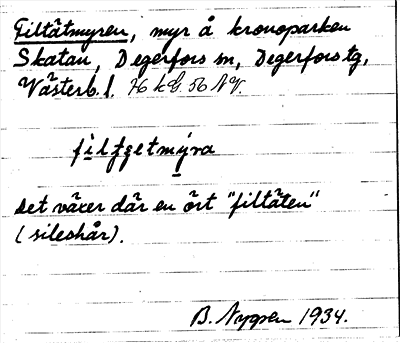 Filtåtmyren, myr å kronoparken
Skatan, Degerfors sn, Degerfors tg,
Västerb. l. 76 kb. 56 NV.
filtɟetmyra
Det växer där en ört "filtåten"
(sileshår).
B. Nygren 1934.